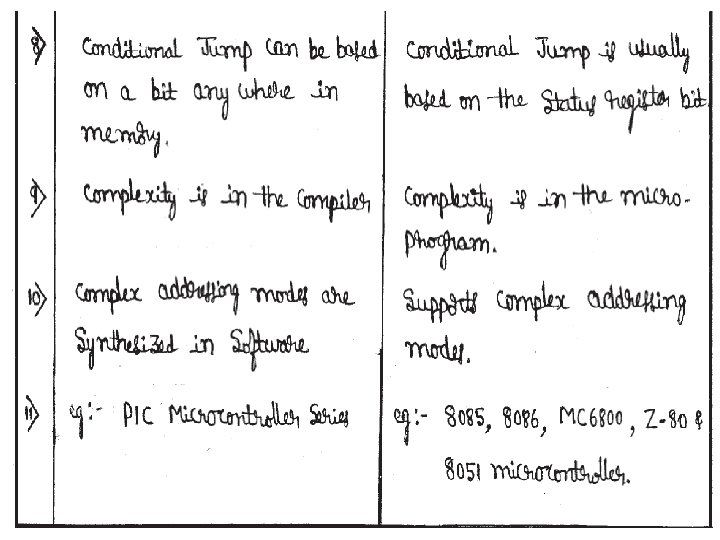 8) Conditional Jump can be based
on a bit any where in
memory.
Conditional Jump is usually
based on the Status register bit.
9) Complexity is in the Compiler
Complexity is in the micro-
program.
10) Complex addressing modes are
Synthesized in Software
Supports Complex addressing
modes.
11) eg:- PIC Microcontroller Series
eg:- 8085, 8086, MC6800, Z-80 &
8051 microcontroller.